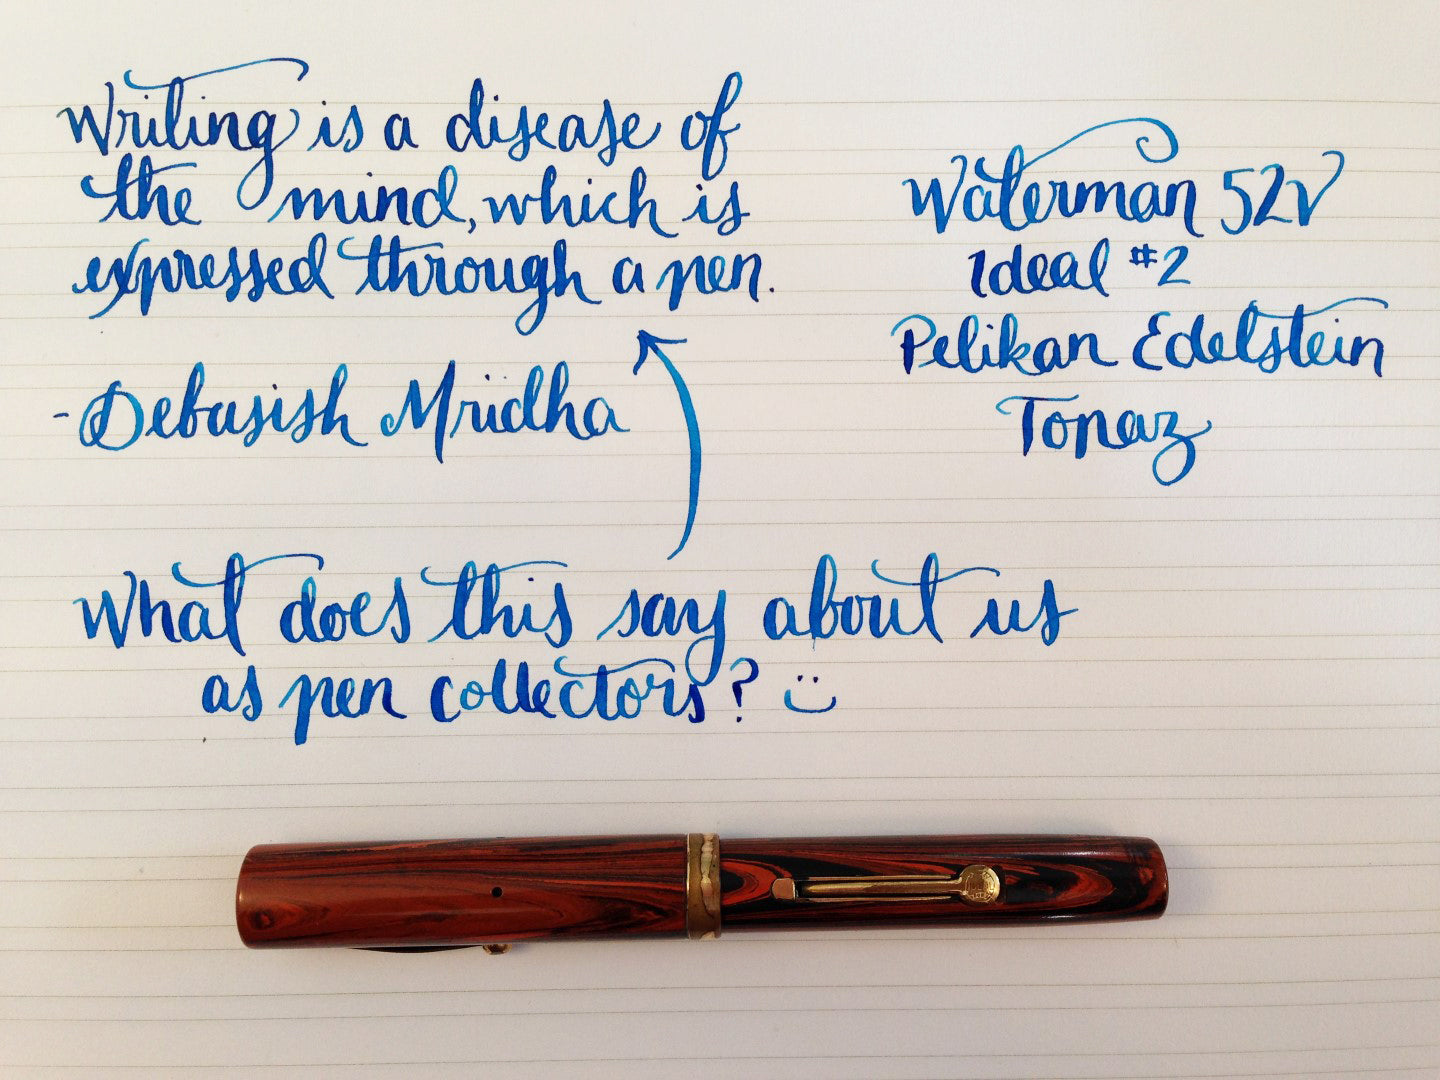 Writing is a disease of
the mind, which is
expressed through a pen.
- Debasish Mridha
Waterman 52V
Ideal #2
Pelikan Edelstein
Topaz
What does this say about us
as pen collectors? :)